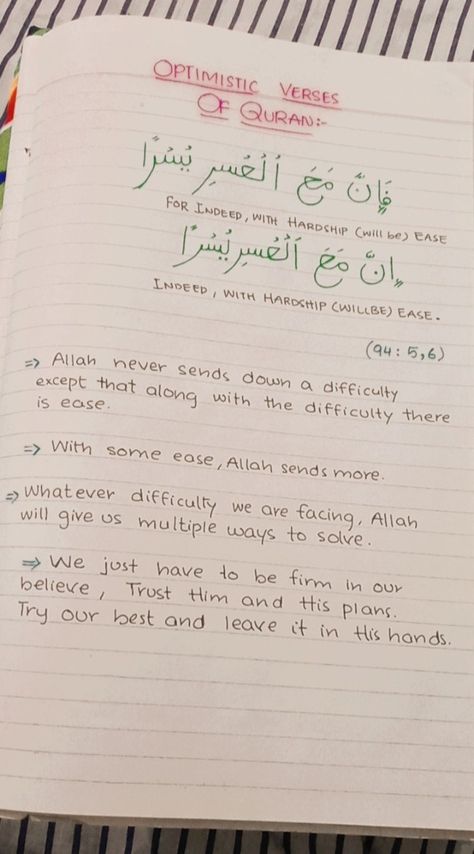 OPTIMISTIC VERSES
OF QURAN:-
فَإِنَّ مَعَ ٱلْعُسْرِ يُسْرًا
FOR INDEED, WITH HARDSHIP (will be) EASE
إِنَّ مَعَ ٱلْعُسْرِ يُسْرًا
INDEED, WITH HARDSHIP (WILLBE) EASE.
(94: 5,6)
⇒ Allah never sends down a difficulty
except that along with the difficulty there
is ease.
⇒ With some ease, Allah sends more.
⇒ Whatever difficulty we are facing, Allah
will give us multiple ways to solve.
⇒ We just have to be firm in our
believe, Trust Him and His plans.
Try our best and leave it in His hands.